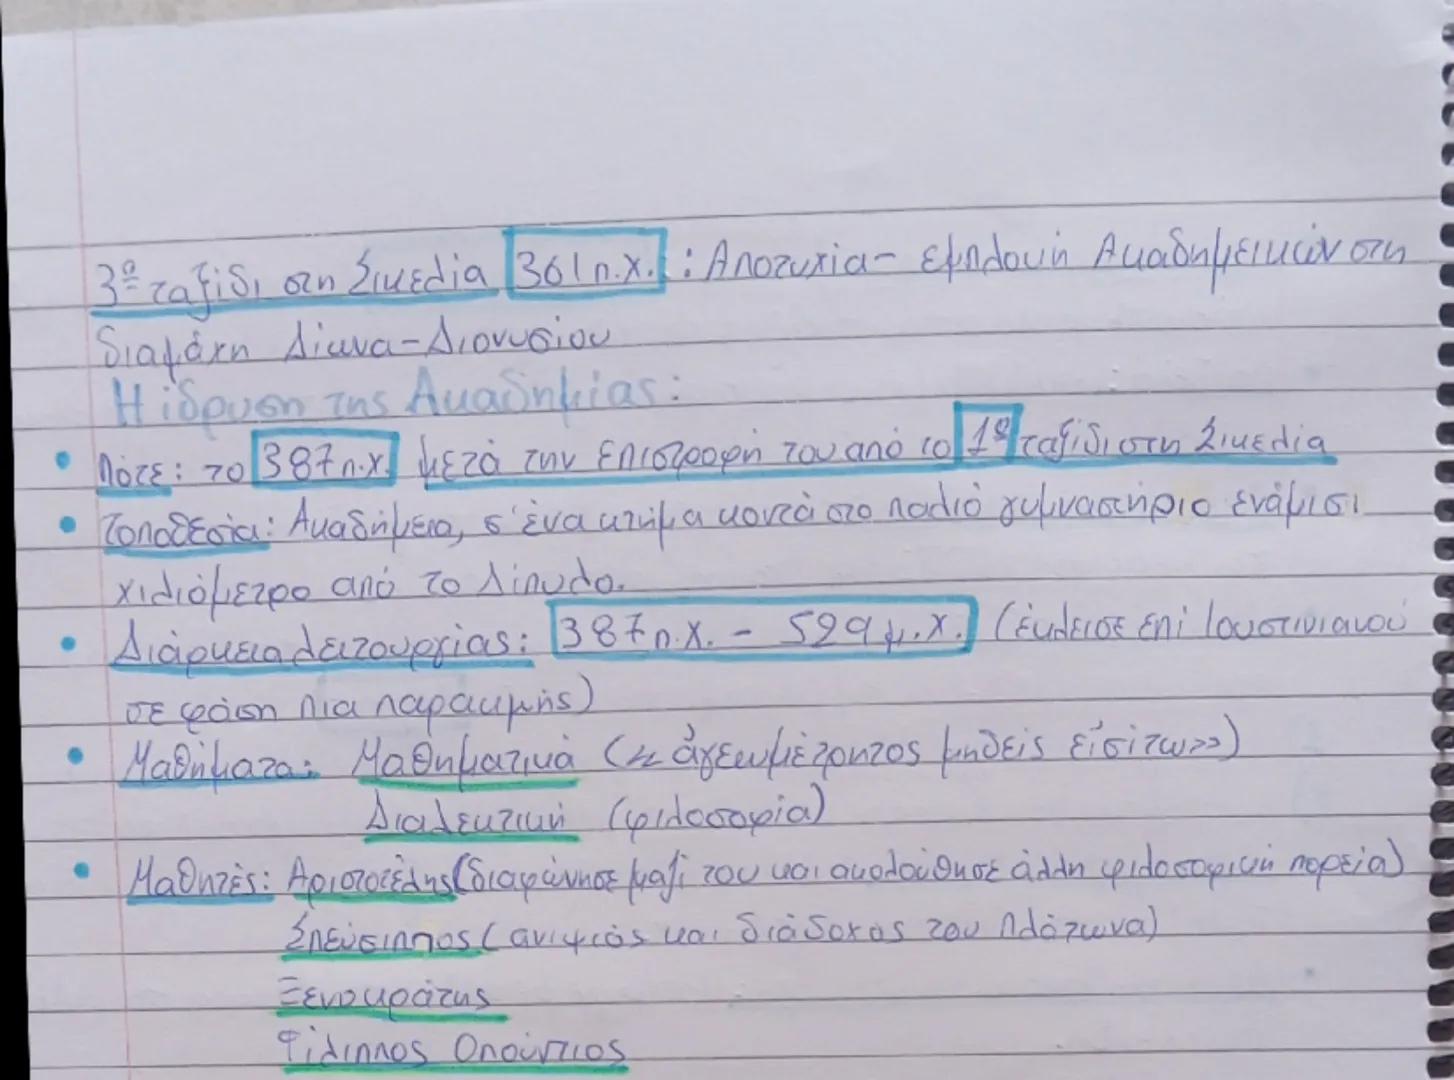 3º ταξίδι στη Σικελία 361 π.Χ. : Αποτυχία - εμπλοκή Ακαδημεικών στη
διαμάχη Δίωνα - Διονυσίου
Η ίδρυση της Ακαδημίας :
• Πότε : το 387 π.Χ. μετά την επιστροφή του από το 1º ταξίδι στη Σικελία
• Τοποθεσία : Ακαδήμεια, σ' ένα κτήμα κοντά στο παλιό γυμναστήριο ενάμισι
χιλιόμετρο από το Δίπυλο.
• Διάρκεια λειτουργίας : 387 π.Χ. - 529 μ.Χ. (έκλεισε επί Ιουστινιανού
σε φάση πια παρακμής)
• Μαθήματα : Μαθηματικά (<< ἀγεωμέτρητος μηδείς εἰσίτω >>)
Διαλεκτική (φιλοσοφία)
• Μαθητές : Αριστοτέλης (διαφώνησε μαζί του και ακολούθησε άλλη φιλοσοφική πορεία)
Σπεύσιππος (ανιψιός και διάδοχος του Πλάτωνα)
Ξενοκράτης
Φίλιππος Οπούντιος